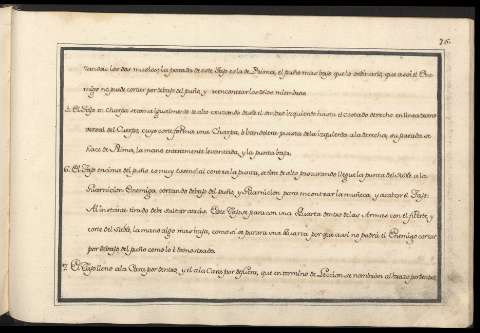 76.
los dos muslos; la parada de este Tajo es la de Prima, el puño mas bajo que lo ordinario, que asi el Ene-
migo no puede cortar por debajo del puño, y encontrar los dos miembros
5. El Tajo en Charpa se tira igualmente de alto cruzando desde el ombro izquierdo hasta el costado derecho en linea trans-
versal del Cuerpo, cuyo corte forma una Charpa, o bandolera puesta de la izquierda a la derecha, su parada se
hace de Prima, la mano enteramente levantada, y la punta baja;
6. El Tajo encima del puño es muy esencial contra la punta, se tira de alto procurando llegue la punta del sable a la
Guarnicion Enemiga, cortando debajo del puño, y Guarnicion para encontrar la muñeca, y acabar el Tajo:
Al instante tirado debe saltar atrás. Este Tajo se para con una Quarta dentro de las Armas con el fuerte, y
corte del sable, la mano algo mas baja, como si se parara una Quarta por que asi no podrá el Enemigo cortar
por debajo del puño como lo é demostrado.
7. El Tajo lleno a la Cara por dentro, y el a la Cara por defuera, que en termino de Leccion se nombran al brazo por dentro,